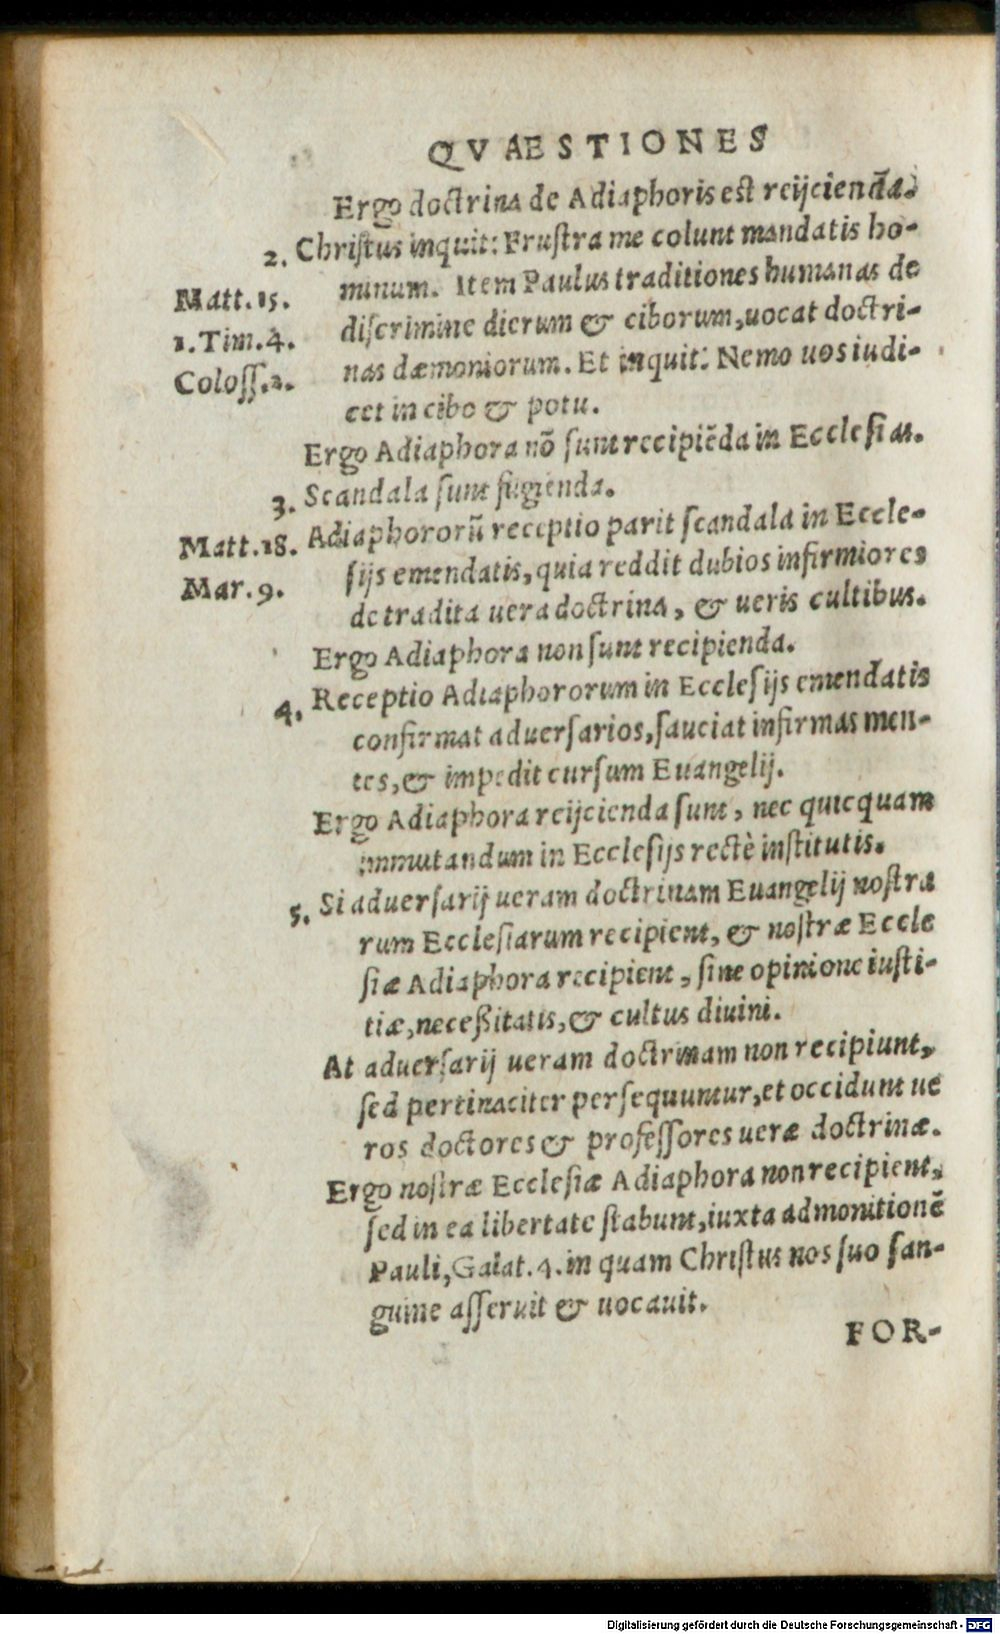 QVAESTIONES
Ergo doctrina de Adiaphoris est reijciendā.
2. Christus inquit: Frustra me colunt mandatis ho-
Matt. 15. minum. Item Paulus traditiones humanas de
1. Tim. 4. discrimine dierum & ciborum, uocat doctri-
Coloss. 2. nas dæmoniorum. Et inquit: Nemo uos iudi-
cet in cibo & potu.
Ergo Adiaphora nō sunt recipiēda in Ecclesias.
3. Scandala sunt fugienda.
Matt. 18. Adiaphororū receptio parit scandala in Eccle-
Mar. 9. sijs emendatis, quia reddit dubios infirmiores
de tradita uera doctrina, & ueris cultibus.
Ergo Adiaphora non sunt recipienda.
4. Receptio Adiaphororum in Ecclesijs emendatis
confirmat aduersarios, sauciat infirmas men-
tes, & impedit cursum Euangelij.
Ergo Adiaphora reijcienda sunt, nec quicquam
immutandum in Ecclesijs rectè institutis.
5. Si aduersarij ueram doctrinam Euangelij nostra
rum Ecclesiarum recipient, & nostræ Eccle
siæ Adiaphora recipient, sine opinione iusti-
tiæ, necessitatis, & cultus diuini.
At aduersarij ueram doctrinam non recipiunt,
sed pertinaciter persequuntur, et occidunt ue
ros doctores & professores ueræ doctrinæ.
Ergo nostræ Ecclesiæ Adiaphora non recipient,
sed in ea libertate stabunt, iuxta admonitionē
Pauli, Galat. 4. in quam Christus nos suo san-
guine asseruit & uocauit.
FOR-
Digitalisierung gefördert durch die Deutsche Forschungsgemeinschaft - DFG